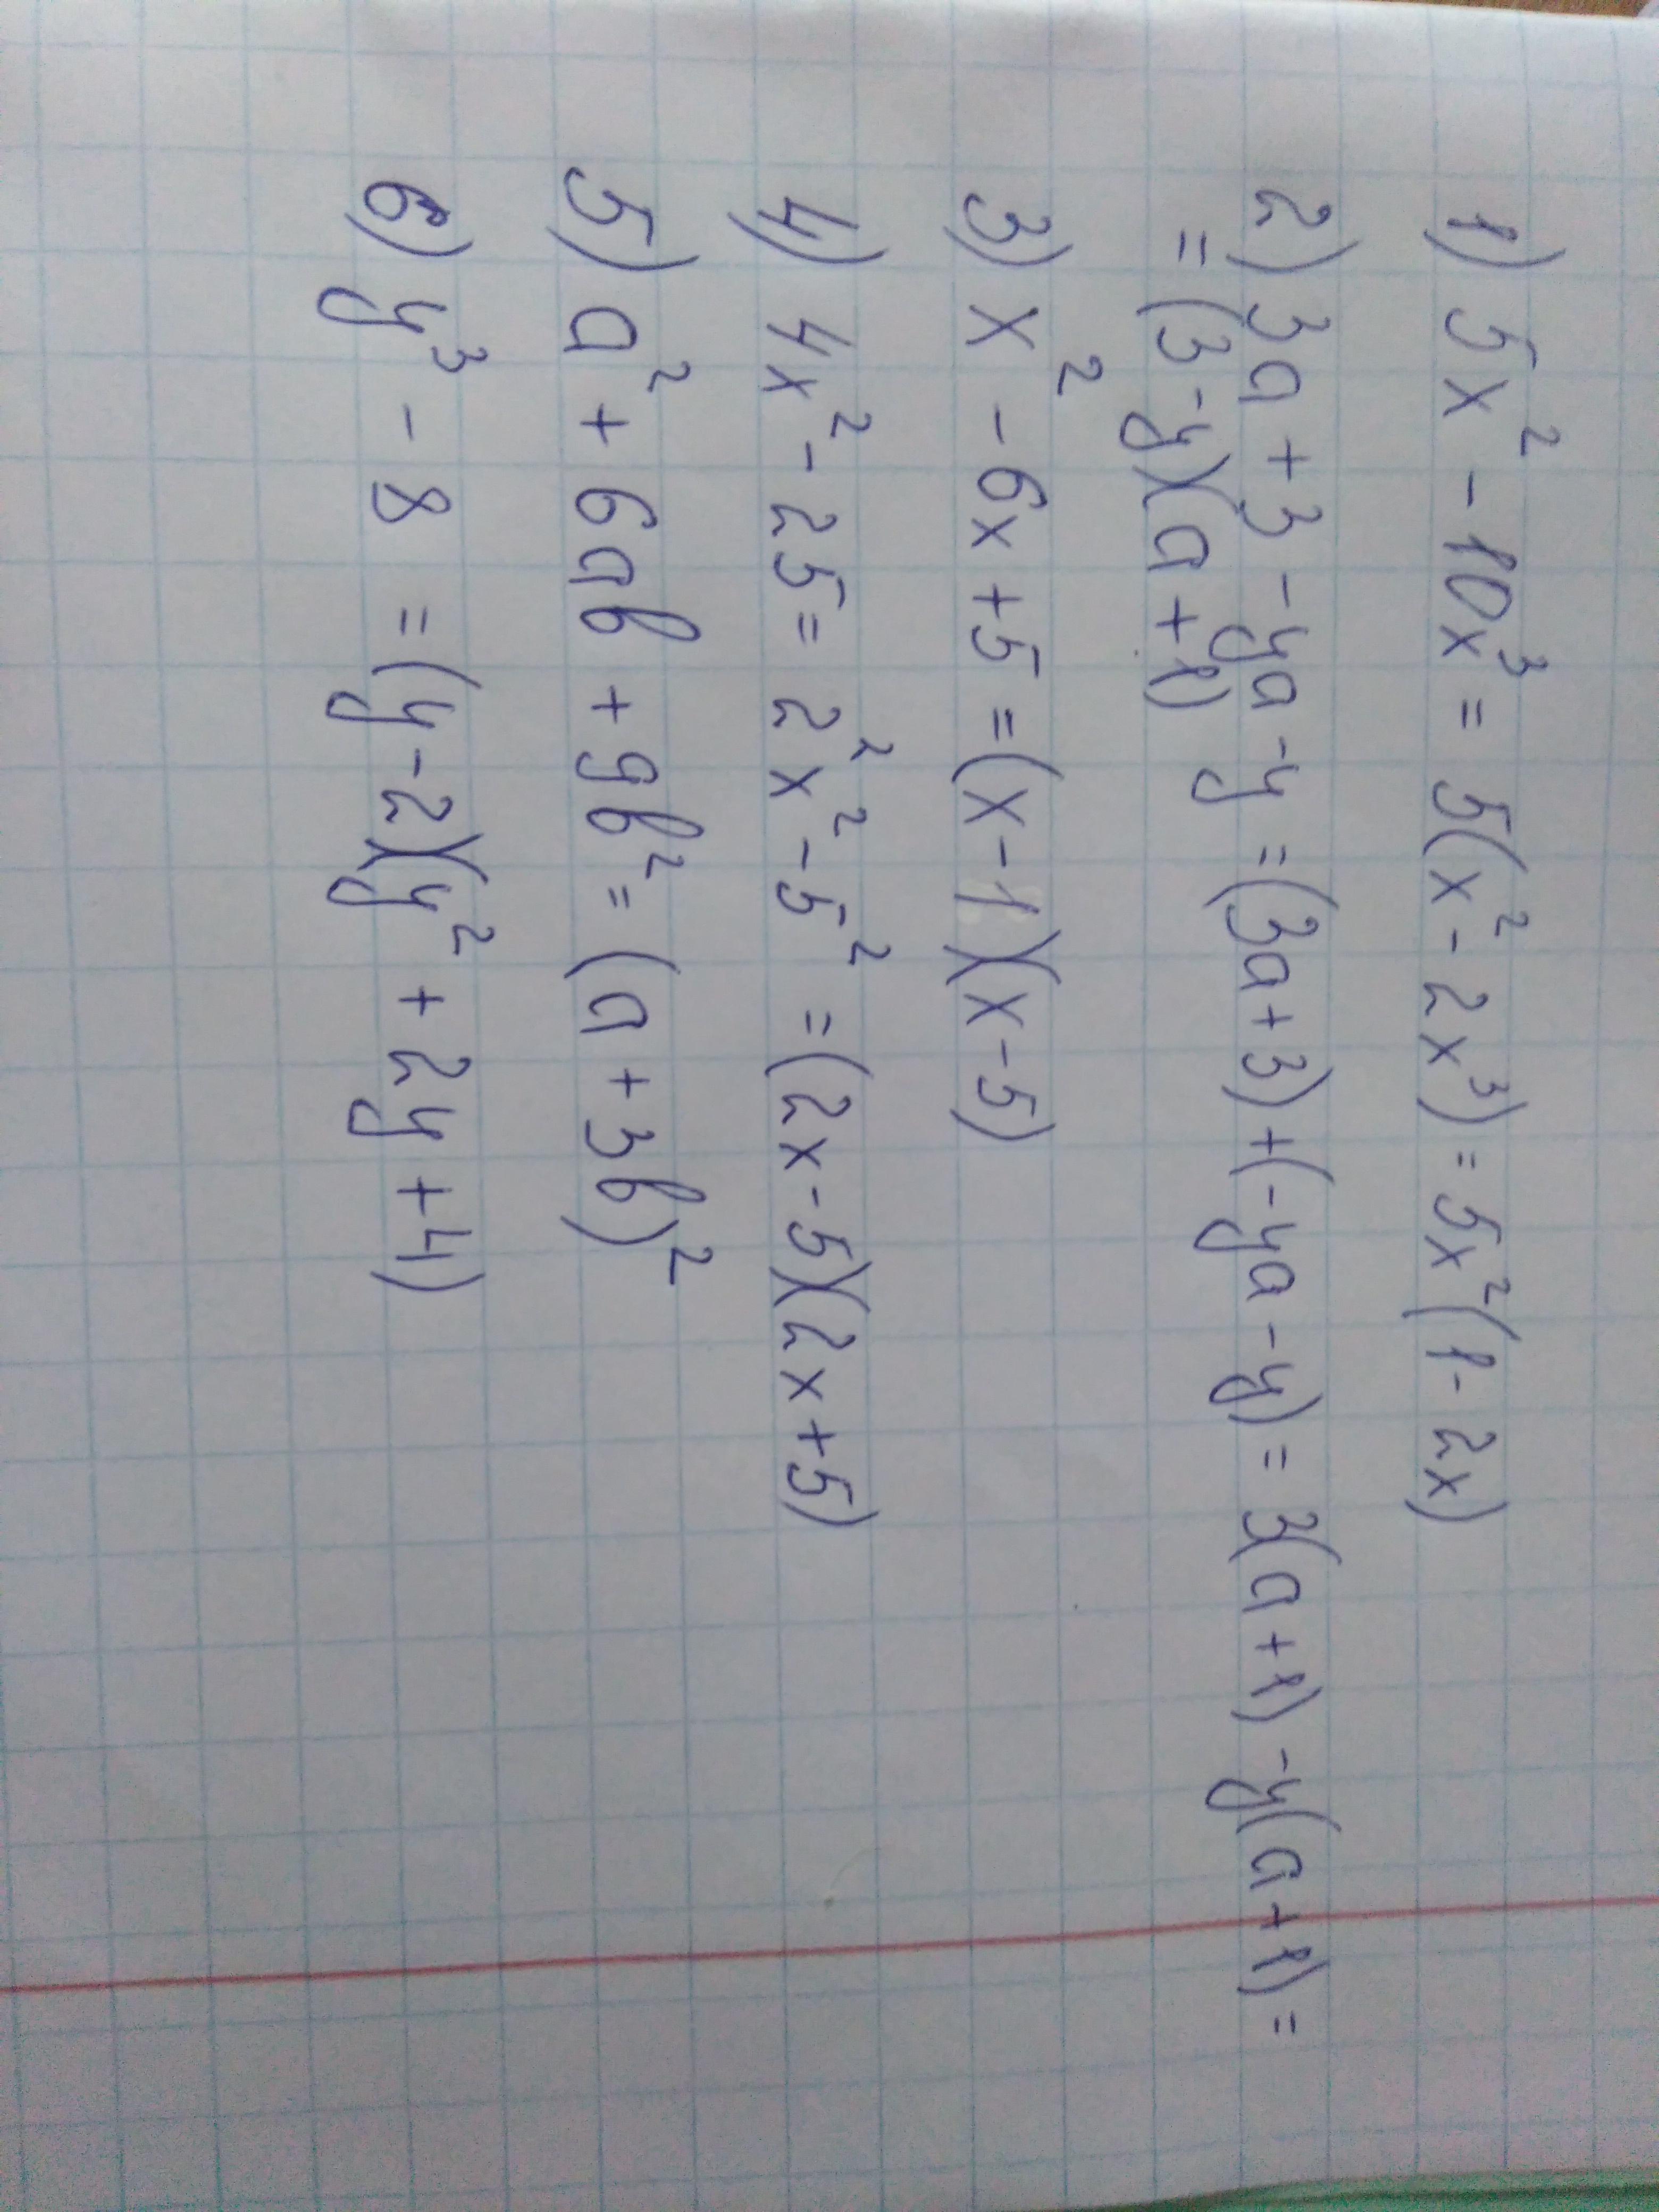 1) 5x² - 10x³ = 5(x² - 2x³) = 5x²(1 - 2x)
2) 3a + 3 - ya - y = (3a + 3) + (-ya - y) = 3(a + 1) - y(a + 1) =
= (3 - y)(a + 1)
3) x² - 6x + 5 = (x - 1)(x - 5)
4) 4x² - 25 = 2²x² - 5² = (2x - 5)(2x + 5)
5) a² + 6ab + 9b² = (a + 3b)²
6) y³ - 8 = (y - 2)(y² + 2y + 4)